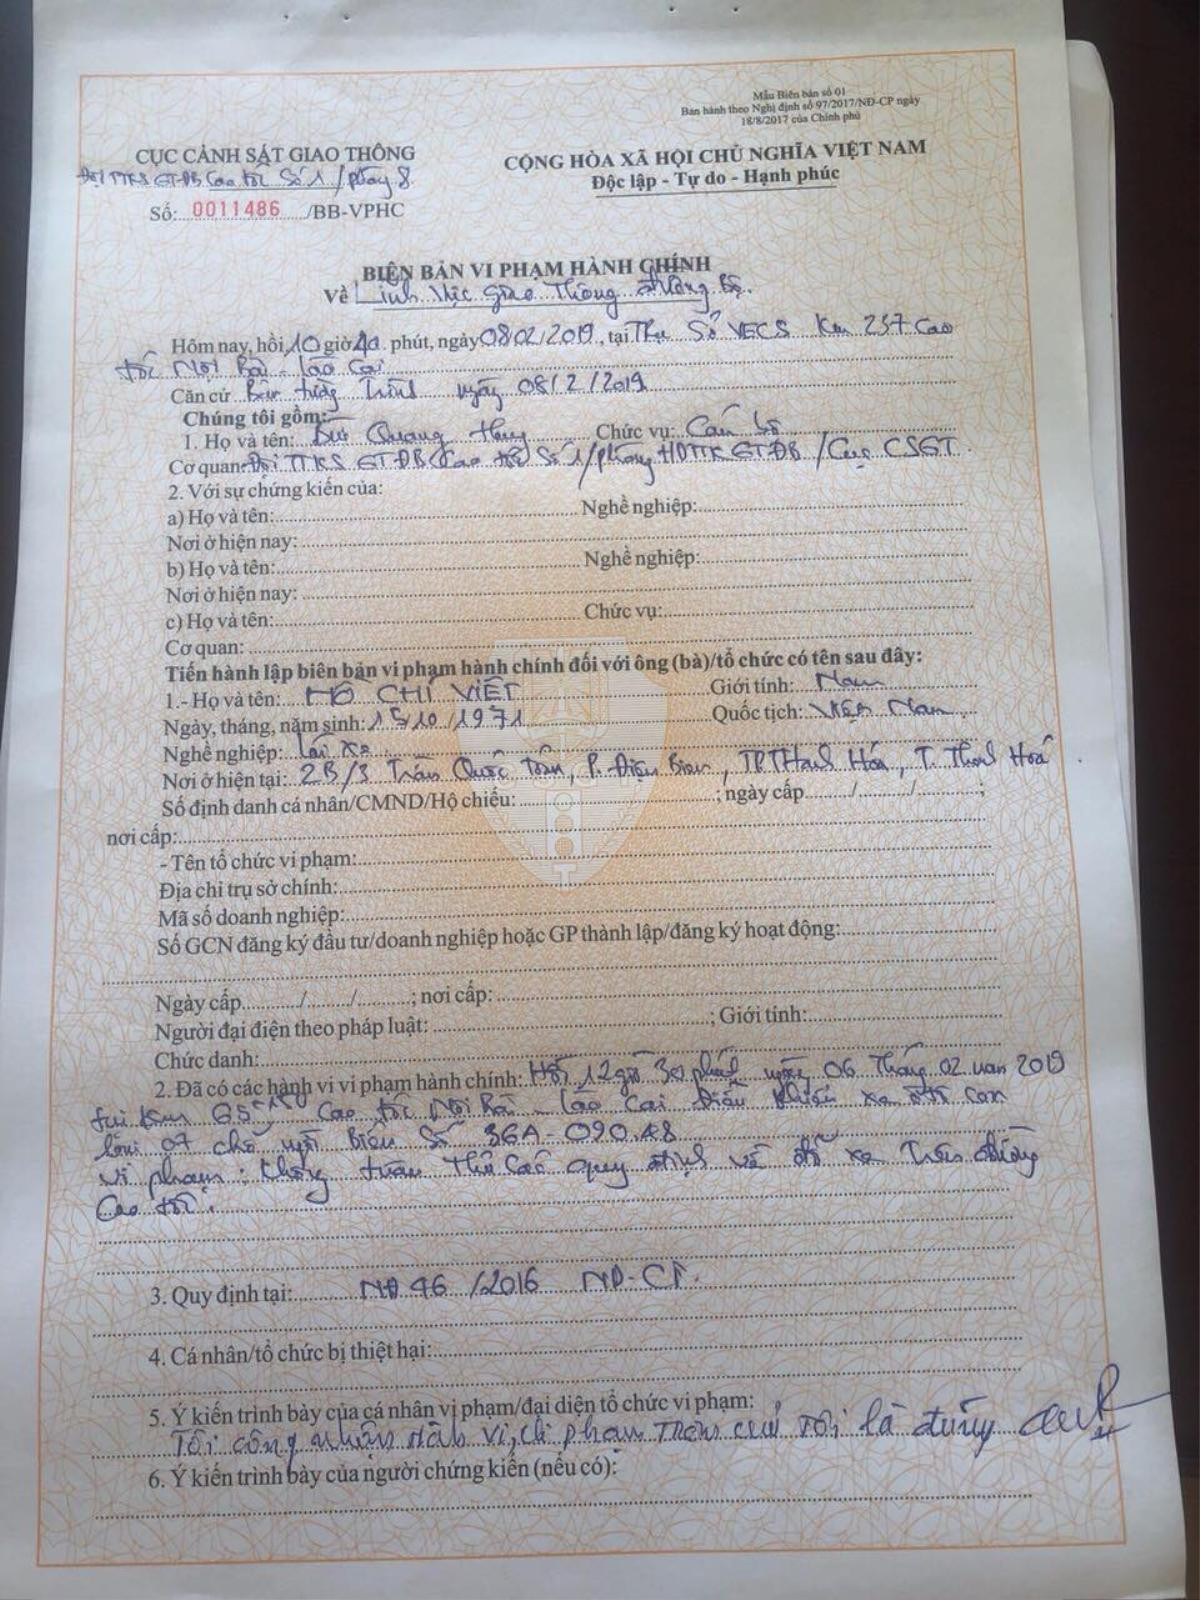 Mẫu Biên bản số 01
Ban hành theo Nghị định số 97/2017/NĐ-CP ngày
18/8/2017 của Chính phủ
CỤC CẢNH SÁT GIAO THÔNG
Đội TTKS GTĐB Cao tốc Số 1 / phòng 8
Số: 0011486 /BB-VPHC
CỘNG HÒA XÃ HỘI CHỦ NGHĨA VIỆT NAM
Độc lập - Tự do - Hạnh phúc
BIÊN BẢN VI PHẠM HÀNH CHÍNH
Về Lĩnh vực giao thông đường bộ.
Hôm nay, hồi 10 giờ 40 phút, ngày 08/02/2019, tại Trụ Sở VECS Km 237 Cao
tốc Nội Bài - Lào Cai
Căn cứ Bản tường trình ngày 08/2/2019
Chúng tôi gồm:
1. Họ và tên: Quang Huy Chức vụ: Cán bộ
Cơ quan: Đội TTKS GTĐB Cao tốc Số 1/phòng HDTTKSGTĐB / Cục CSGT
2. Với sự chứng kiến của:
a) Họ và tên: Nghề nghiệp:
Nơi ở hiện nay:
b) Họ và tên: Nghề nghiệp:
Nơi ở hiện nay:
c) Họ và tên: Chức vụ:
Cơ quan:
Tiến hành lập biên bản vi phạm hành chính đối với ông (bà)/tổ chức có tên sau đây:
1.- Họ và tên: HỒ CHÍ VIỆT Giới tính: Nam
Ngày, tháng, năm sinh: 15/10/1971 Quốc tịch: Việt Nam
Nghề nghiệp: Lái xe
Nơi ở hiện tại: 2B/3 Trần Quốc Toản, P. Điện Biên, TP Thanh Hóa, T. Thanh Hoá
Số định danh cá nhân/CMND/Hộ chiếu: ; ngày cấp / / ;
nơi cấp:
- Tên tổ chức vi phạm:
Địa chỉ trụ sở chính:
Mã số doanh nghiệp:
Số GCN đăng ký đầu tư/doanh nghiệp hoặc GP thành lập/đăng ký hoạt động:
Ngày cấp / / ; nơi cấp:
Người đại diện theo pháp luật: ; Giới tính:
Chức danh:
2. Đã có các hành vi vi phạm hành chính: Hồi 12 giờ 30 phút ngày 06 tháng 02 năm 2019
tại Km Cao tốc Nội Bài - Lào Cai Điều khiển xe ô tô con
07 chỗ ngồi Biển Số 36A-090.48
vi phạm: Không tuân thủ các quy định về đỗ xe trên đường
Cao tốc.
3. Quy định tại: NĐ 46 /2016 NĐ-CP.
4. Cá nhân/tổ chức bị thiệt hại:
5. Ý kiến trình bày của cá nhân vi phạm/đại diện tổ chức vi phạm:
Tôi công nhận phạm tôi là đúng
6. Ý kiến trình bày của người chứng kiến (nếu có):